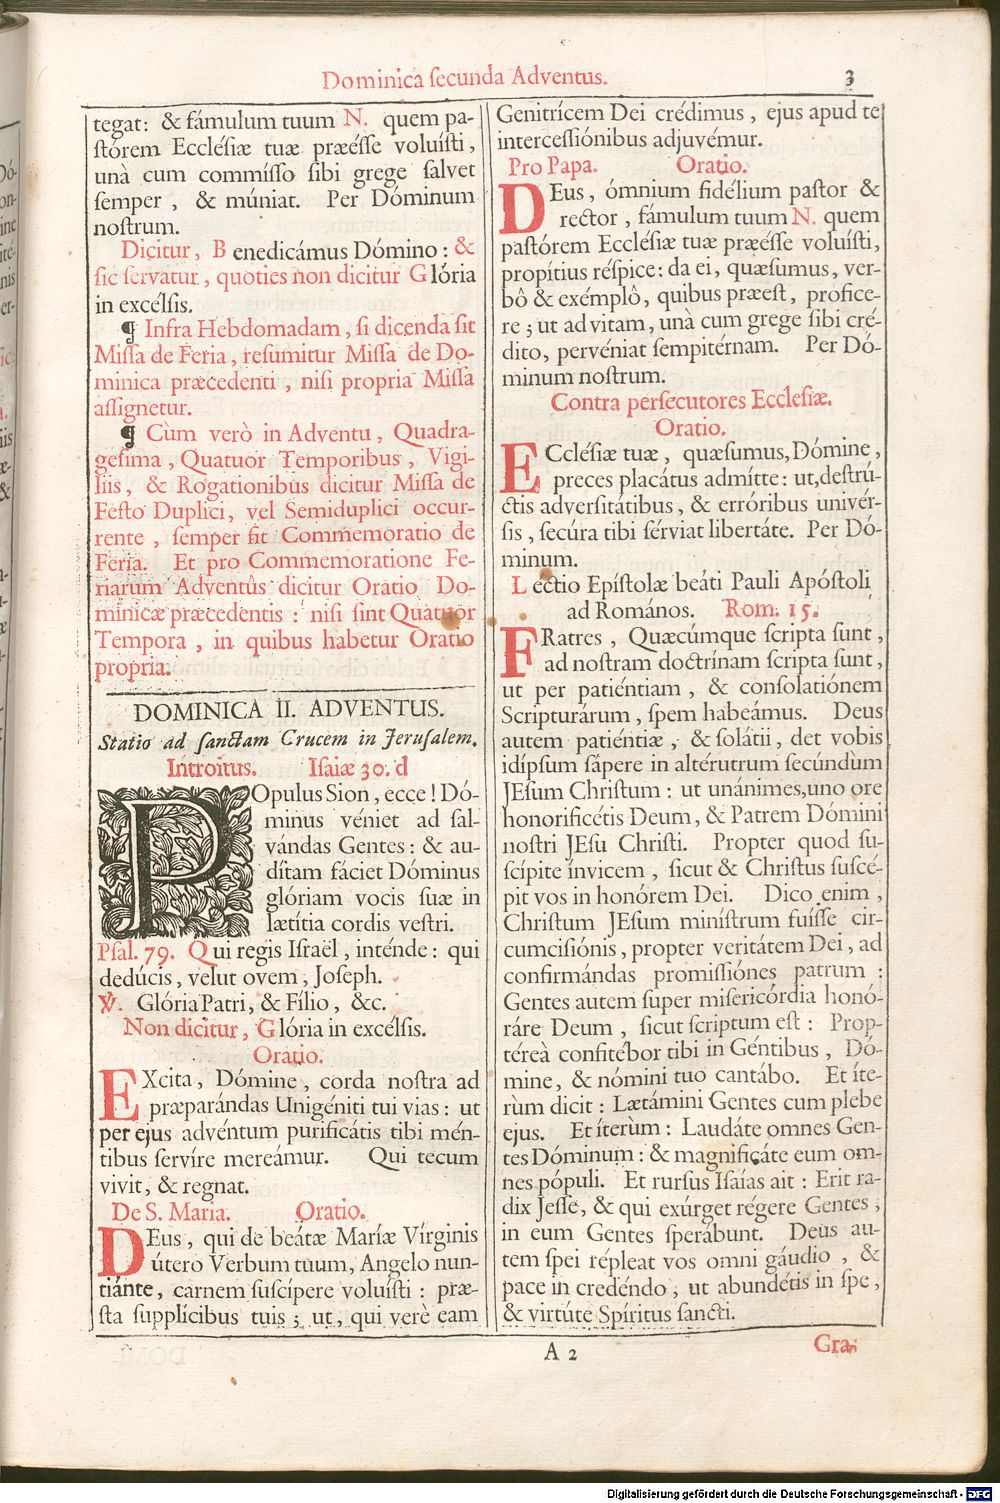 Dominica ſecunda Adventus.
3
tegat: & fámulum tuum N. quem pa-
ſtórem Eccléſiæ tuæ præéſſe voluíſti,
unà cum commíſſo ſibi grege ſalvet
ſemper, & múniat. Per Dóminum
noſtrum.
Dicitur, Benedicámus Dómino: &
ſic ſervatur, quoties non dicitur Glória
in excélſis.
¶ Infra Hebdomadam, ſi dicenda ſit
Miſſa de Feria, reſumitur Miſſa de Do-
minica præcedenti, niſi propria Miſſa
aſſignetur.
¶ Cùm verò in Adventu, Quadra-
geſima, Quatuor Temporibus, Vigi-
liis, & Rogationibus dicitur Miſſa de
Feſto Duplici, vel Semiduplici occur-
rente, ſemper fit Commemoratio de
Feria. Et pro Commemoratione Fe-
riarum Adventûs dicitur Oratio Do-
minicæ præcedentis: niſi ſint Quatuor
Tempora, in quibus habetur Oratio
propria.
DOMINICA II. ADVENTUS.
Statio ad ſanctam Crucem in Jeruſalem.
Introitus. Iſaiæ 30. d
POpulus Sion, ecce! Dó-
minus véniet ad ſal-
vándas Gentes: & au-
dítam fáciet Dóminus
glóriam vocis ſuæ in
lætítia cordis veſtri.
Pſal. 79. Qui regis Iſraël, inténde: qui
dedúcis, velut ovem, Joſeph.
℣. Glória Patri, & Fílio, &c.
Non dicitur, Glória in excelſis.
Oratio.
EXcita, Dómine, corda noſtra ad
præparándas Unigéniti tui vias: ut
per ejus advéntum purificátis tibi mén-
tibus ſervíre mereámur. Qui tecum
vivit, & regnat.
De S. Maria. Oratio.
DEus, qui de beátæ Maríæ Vírginis
útero Verbum tuum, Angelo nun-
tiánte, carnem ſuſcípere voluíſti: præ-
ſta ſupplícibus tuis; ut, qui verè eam
Genitrícem Dei crédimus, ejus apud te
interceſſiónibus adjuvémur.
Pro Papa. Oratio.
DEus, ómnium fidélium paſtor &
rector, fámulum tuum N. quem
paſtórem Eccléſiæ tuæ præéſſe voluíſti,
propítius réſpice: da ei, quæſumus, ver-
bô & exémplô, quibus præeſt, profice-
re; ut ad vitam, unà cum grege ſibi cré-
dito, pervéniat ſempitérnam. Per Dó-
minum noſtrum.
Contra persecutores Eccleſiæ.
Oratio.
ECcléſiæ tuæ, quæſumus, Dómine,
preces placátus admítte: ut, deſtrú-
ctis adverſitátibus, & erróribus univér-
ſis, ſecúra tibi ſérviat libertáte. Per Dó-
minum.
Lectio Epíſtolæ beáti Pauli Apóſtoli
ad Romános. Rom. 15.
FRatres, Quæcúmque ſcripta ſunt,
ad noſtram doctrínam ſcripta ſunt,
ut per patiéntiam, & conſolatiónem
Scripturárum, ſpem habeámus. Deus
autem patiéntiæ, & ſolátii, det vobis
idípſum ſápere in altérutrum ſecúndùm
JEſum Chriſtum: ut unánimes, uno ore
honorificétis Deum, & Patrem Dómini
noſtri JEſu Chriſti. Propter quod ſu-
ſcípite ínvicem, ſicut & Chriſtus ſuſcé-
pit vos in honórem Dei. Dico enim,
Chriſtum JEſum miníſtrum fuíſſe cir-
cumciſiónis, propter veritátem Dei, ad
confirmándas promiſſiónes patrum:
Gentes autem ſuper miſericórdia honó-
ráre Deum, ſicut ſcriptum eſt: Prop-
téreà confitébor tibi in Géntibus, Dó-
mine, & nómini tuo cantábo. Et íte-
rùm dicit: Lætámini Gentes cum plebe
ejus. Et íterùm: Laudáte omnes Gen-
tes Dóminum: & magnificáte eum om-
nes pópuli. Et rurſus Iſaías ait: Erit ra-
dix Jeſſe, & qui exúrget régere Gentes,
in eum Gentes ſperábunt. Deus au-
tem ſpei répleat vos omni gáudio, &
pace in credéndo, ut abundétis in ſpe,
& virtúte Spíritus ſancti.
A 2
Gra-
Digitalisierung gefördert durch die Deutsche Forschungsgemeinschaft - DFG